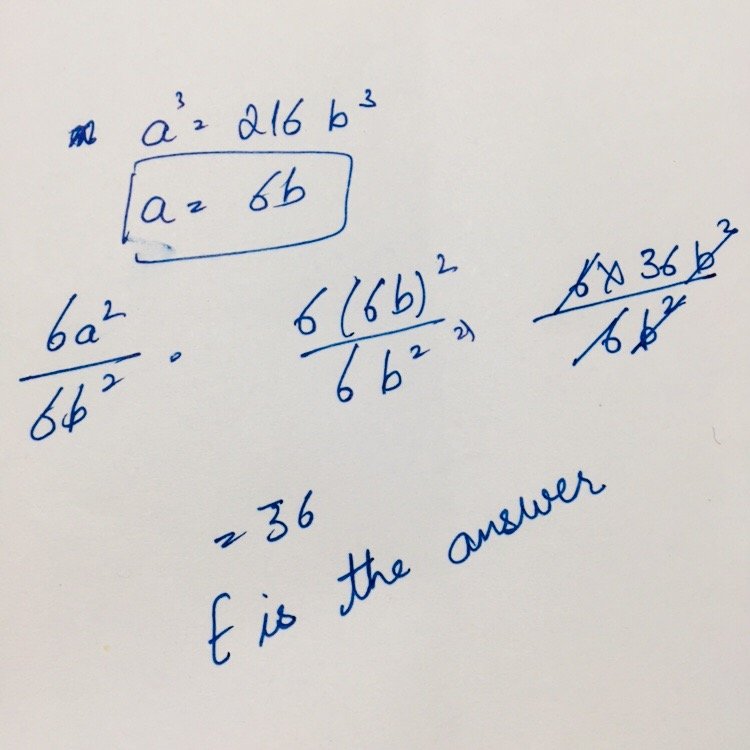 a³ = 216 b³
a = 6b
6a²/6b² = 6(6b)²/6b² ⇒ 6 × 36 b²/6b²
= 36
E is the answer